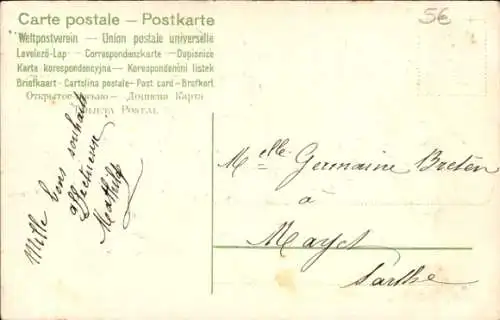 Carte postale – Postkarte
Weltpostverein – Union postale universelle
Levelező-Lap – Correspondenzkarte – Dopisnice
Karta korespondencyjna – Korespondenční lístek
Briefkaart – Cartolina postale – Post card – Brefkort
Открытое письмо – Дописна Карта
Postal
56
Mille bons souhaits
affectueux
Mathild
Melle Germaine Breton
à
Mayet
Sarthe